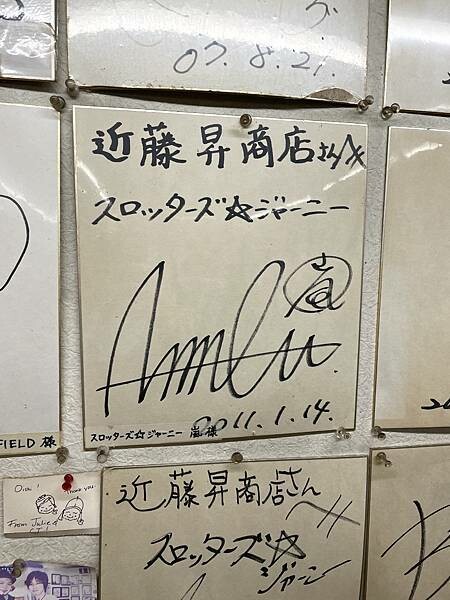 07.8.21.
近藤昇商店さんへ
スロッターズ☆ジャーニー
嵐
2011.1.14.
スロッターズ☆ジャーニー 嵐 様
FIELD 様
Thank you
From Julie &
近藤昇商店さんへ
スロッターズ☆
ジャーニー